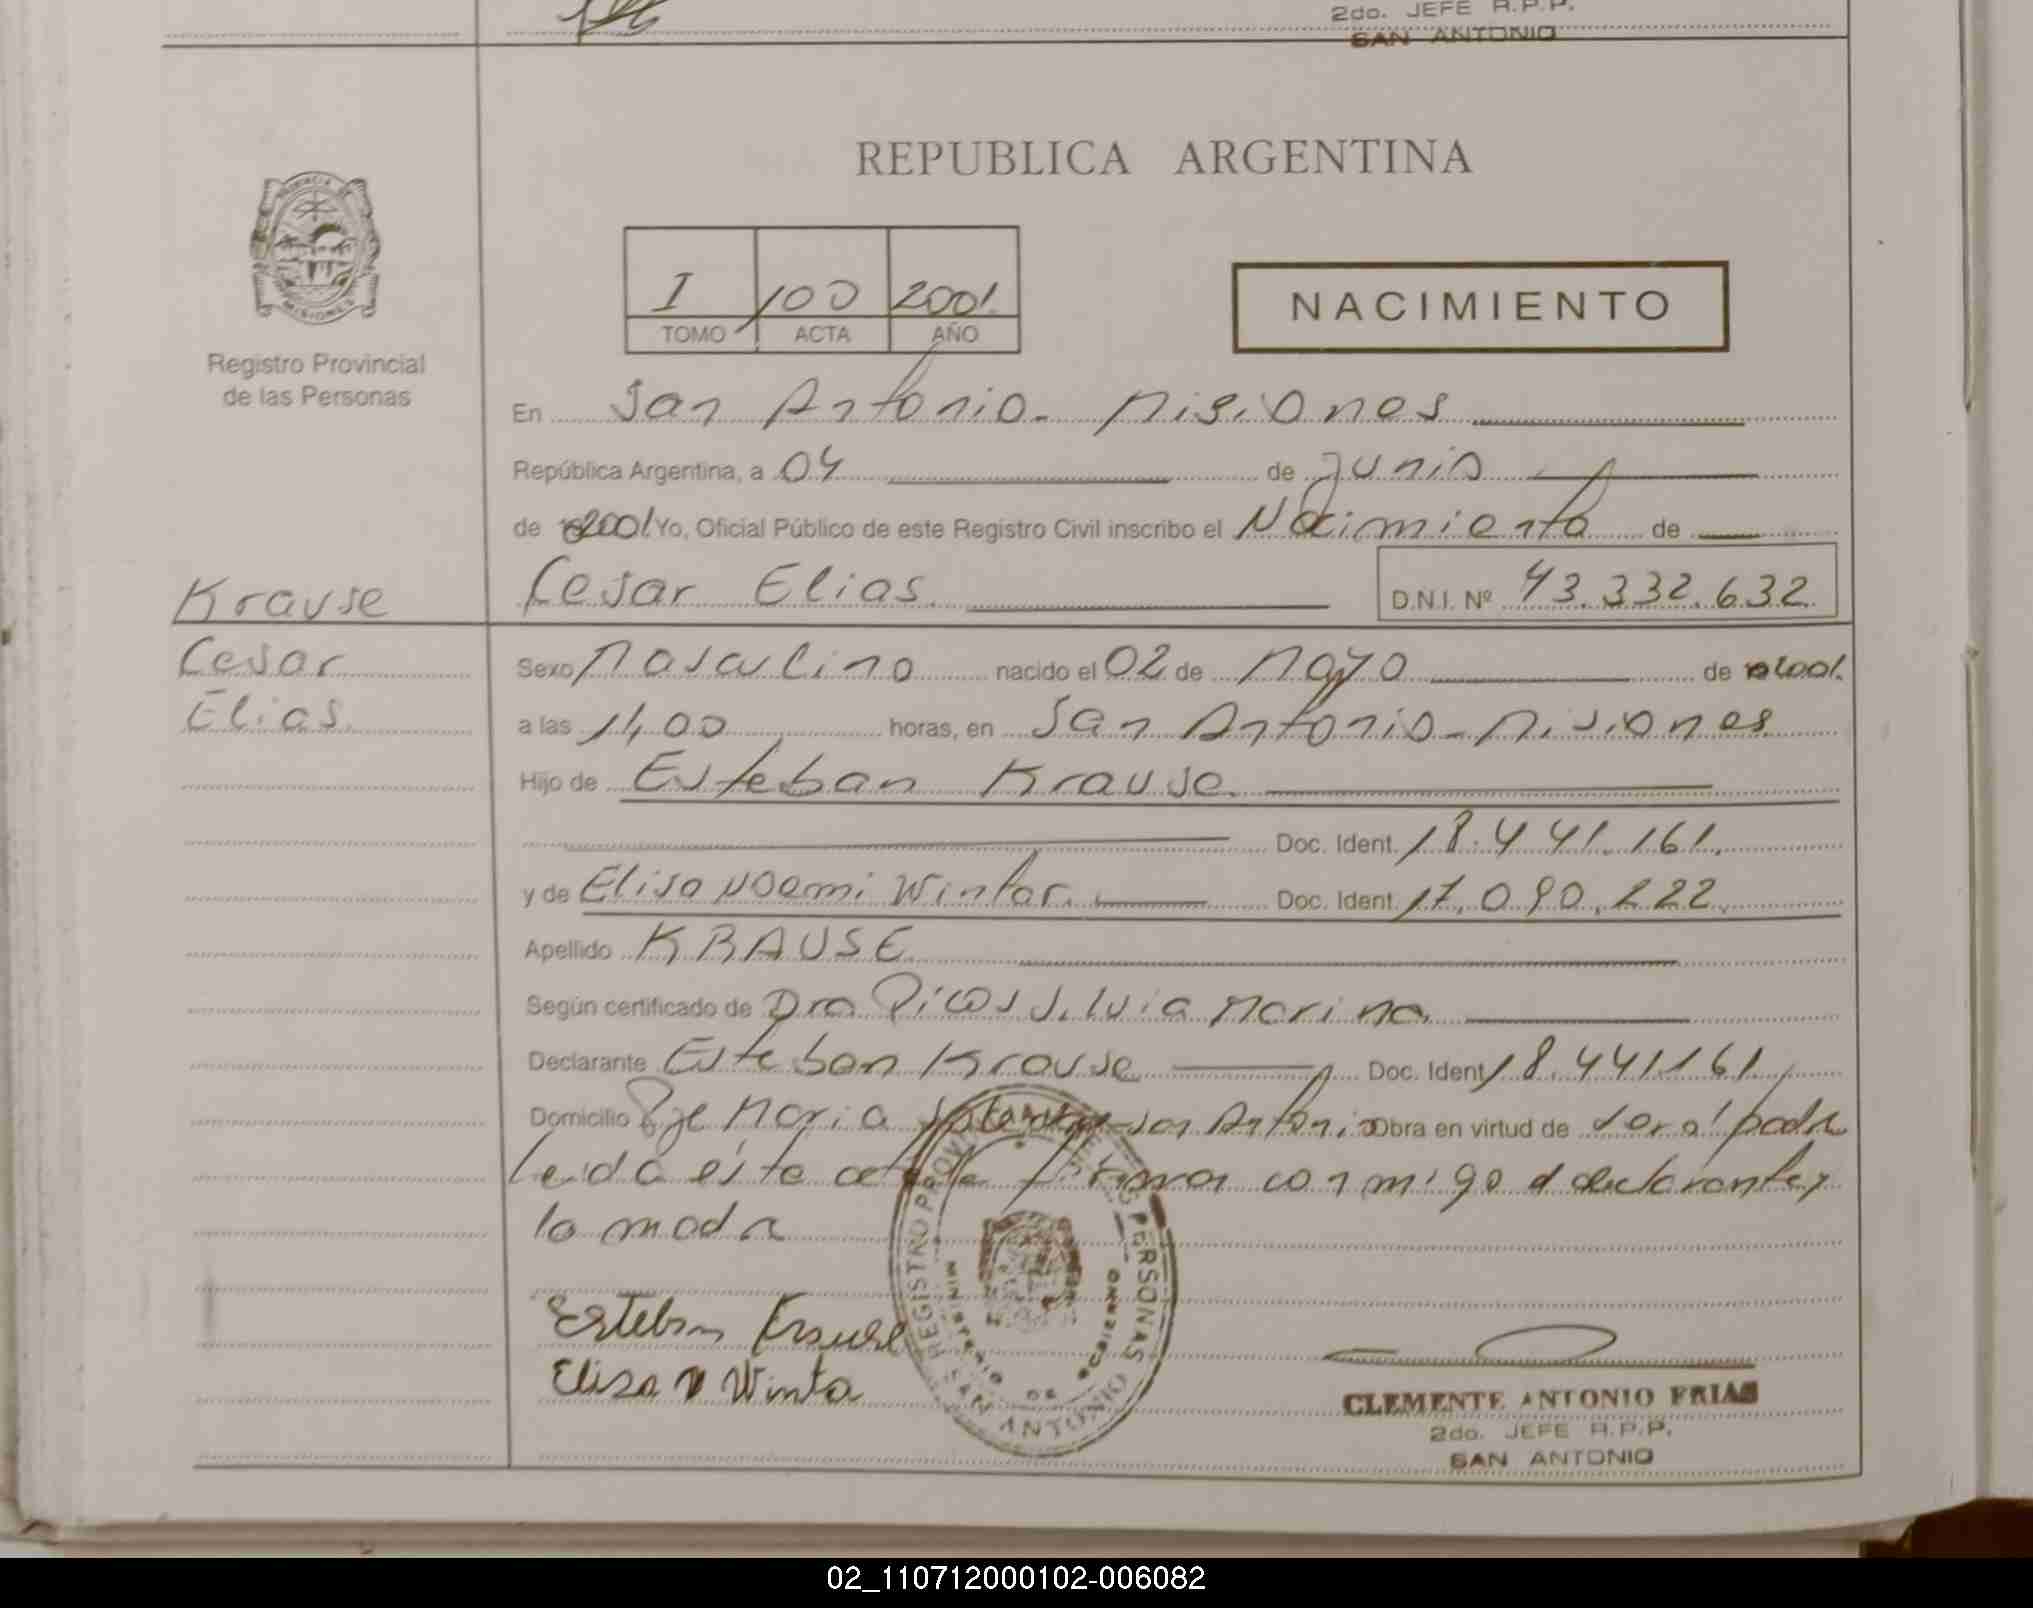 2do. JEFE R.P.P.
SAN ANTONIO
REPUBLICA ARGENTINA
PROVINCIA DE
MISIONES
Registro Provincial
de las Personas
I 100 2001.
TOMO ACTA AÑO
NACIMIENTO
En San Antonio - Misiones
República Argentina, a 04 de Junio
de 2001 Yo, Oficial Público de este Registro Civil inscribo el Nacimiento de
Krause
Cesar Elias. D.N.I. Nº 43.332.632
Cesar
Elias.
Sexo Masculino nacido el 02 de Mayo de 2001.
a las 14,00 horas, en San Antonio - Misiones
Hijo de Esteban Krause.
Doc. Ident. 18.441.161.
y de Elisa Noemi Winter. Doc. Ident. 17.090.222.
Apellido KRAUSE
Según certificado de Dra Picos Silvia Marina.
Declarante Esteban Krause Doc. Ident 18.441.161
Domicilio Pje Maria San Antonio Obra en virtud de ser el padre
Leida esta acta la firman conmigo el declarante y
la madre
Esteban Krause
Elisa N Winter
REGISTRO PROVINCIAL DE LAS PERSONAS
MINISTERIO DE GOBIERNO
SAN ANTONIO
CLEMENTE ANTONIO FRIAS
2do. JEFE R.P.P.
SAN ANTONIO
02_110712000102-006082